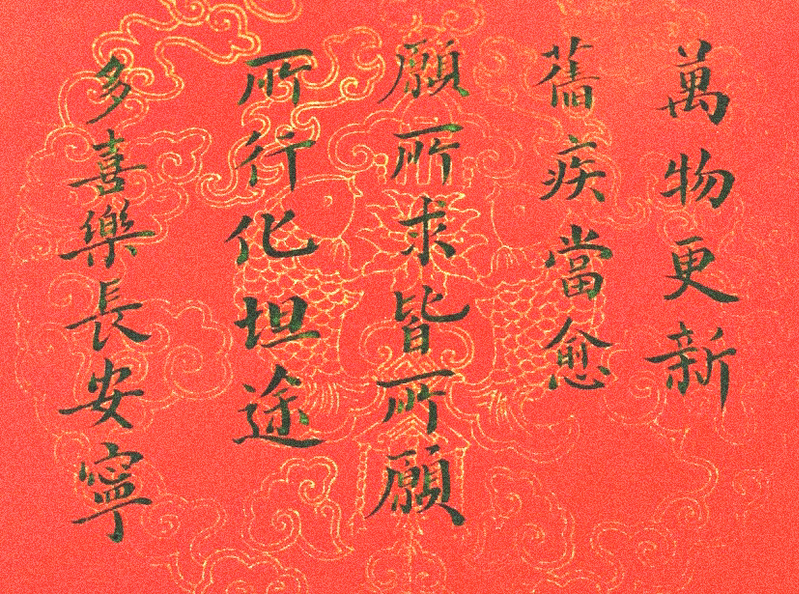 萬物更新
舊疾當愈
願所求皆所願
所行化坦途
多喜樂長安寧